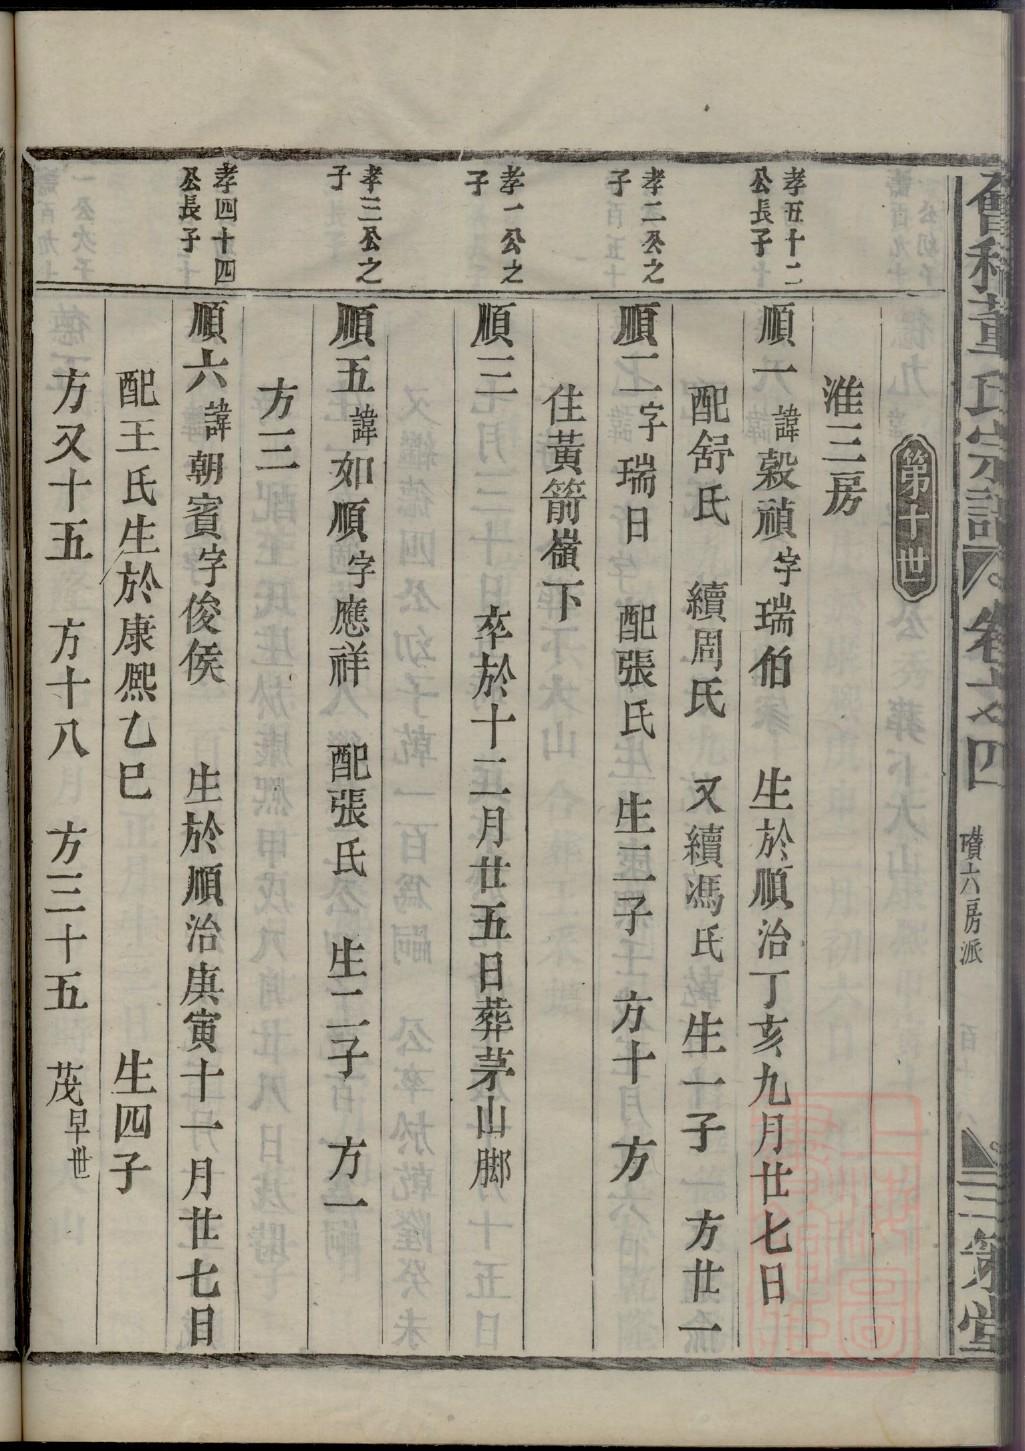 舊稱董氏宗譜 卷之四 磧六房派 三策堂
第十世
淮三房
孝五十二公長子
順一諱榖禎字瑞伯 生於順治丁亥九月廿七日
配舒氏 續周氏 又續馮氏 生一子 方廿一
孝二公之子
順二字瑞日 配張氏 生二子 方十 方
住黃箭嶺下
孝一公之子
順三 卒於十二月廿五日葬茅山脚
孝三公之子
順五諱如順字應祥 配張氏 生二子 方一
方三
孝四十四公長子
順六諱朝賓字俊侯 生於順治庚寅十一月廿七日
配王氏生於康熙乙巳 生四子
方又十五 方十八 方三十五 茂早世